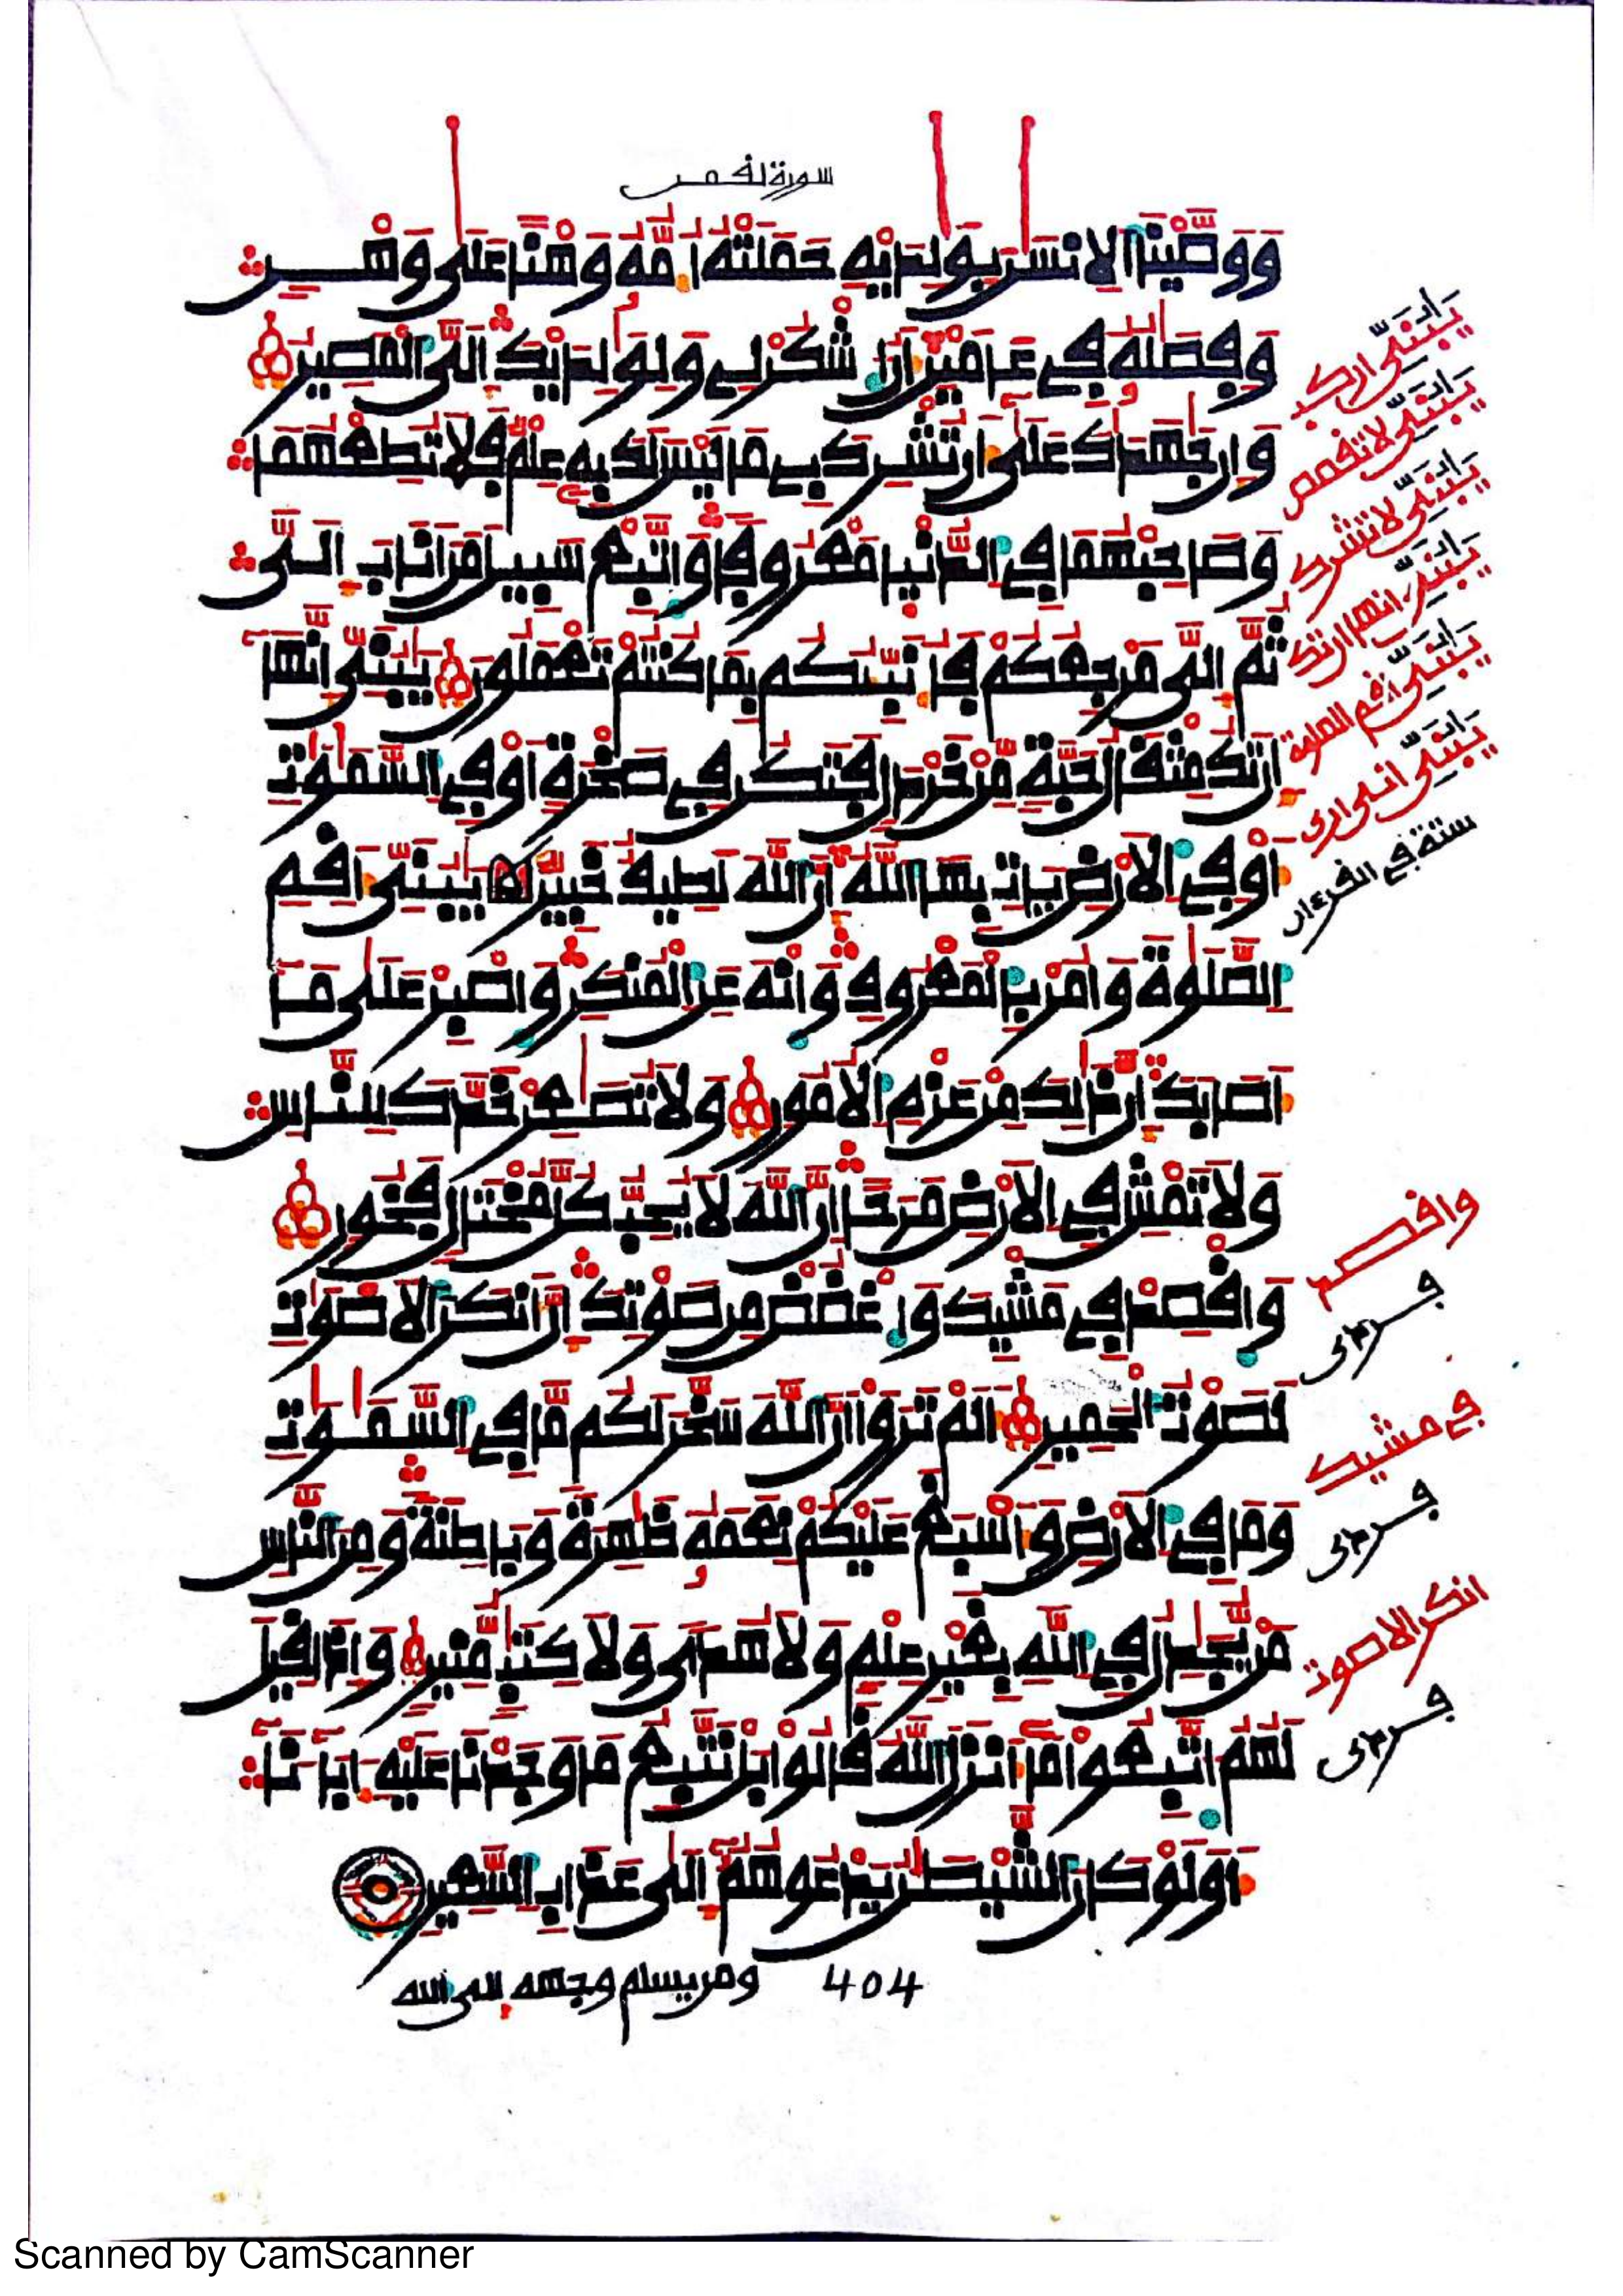 سورة لقمن
وَوَصَّيْنَا اَلِانسَٰنَ بِوَٰلِدَيْهِ حَمَلَتْهُ أُمُّهُۥ وَهْناً عَلَىٰ وَهْنٍ
وَفِصَٰلُهُۥ فِى عَامَيْنِ أَنُ اُشْكُرْ لِى وَلِوَٰلِدَيْكَ إِلَىَّ اَلْمَصِيرُ
وَإِن جَٰهَدَٰكَ عَلَىٰٓ أَن تُشْرِكَ بِى مَا لَيْسَ لَكَ بِهِۦ عِلْمٌ فَلَا تُطِعْهُمَا
وَصَاحِبْهُمَا فِى اِلدُّنْيَا مَعْرُوفاً وَاتَّبِعْ سَبِيلَ مَنْ أَنَابَ إِلَىَّ
ثُمَّ إِلَىَّ مَرْجِعُكُمْ فَأُنَبِّئُكُم بِمَا كُنتُمْ تَعْمَلُونَ يَٰبُنَىِّ إِنَّهَآ
إِن تَكُ مِثْقَالُ حَبَّةٍ مِّنْ خَرْدَلٍ فَتَكُن فِى صَخْرَةٍ أَوْ فِى اِلسَّمَٰوَٰتِ
أَوْ فِى اِلَارْضِ يَاتِ بِهَا اَللَّهُ إِنَّ اَللَّهَ لَطِيفٌ خَبِيرٌ يَٰبُنَىِّ أَقِمِ
اِلصَّلَوٰةَ وَامُرْ بِالْمَعْرُوفِ وَانْهَ عَنِ اِلْمُنكَرِ وَاصْبِرْ عَلَىٰ مَآ
أَصَابَكَ إِنَّ ذَٰلِكَ مِنْ عَزْمِ اِلُامُورِ وَلَا تُصَٰعِرْ خَدَّكَ لِلنَّاسِ
وَلَا تَمْشِ فِى اِلَارْضِ مَرَحاً اِنَّ اَللَّهَ لَا يُحِبُّ كُلَّ مُخْتَالٍ فَخُورٍ
وَاقْصِدْ فِى مَشْيِكَ وَاغْضُضْ مِن صَوْتِكَ إِنَّ أَنكَرَ اَلَاصْوَٰتِ
لَصَوْتُ اُلْحَمِيرِ أَلَمْ تَرَوَاْ اَنَّ اَللَّهَ سَخَّرَ لَكُم مَّا فِى اِلسَّمَٰوَٰتِ
وَمَا فِى اِلَارْضِ وَأَسْبَغَ عَلَيْكُمْ نِعَمَهُۥ ظَٰهِرَةً وَبَاطِنَةً وَمِنَ اَلنَّاسِ
مَنْ يُّجَٰدِلُ فِى اِللَّهِ بِغَيْرِ عِلْمٍ وَلَا هُدىً وَلَا كِتَٰبٍ مُّنِيرٍ وَإِذَا قِيلَ
لَهُمُ اُتَّبِعُواْ مَآ أَنزَلَ اَللَّهُ قَالُواْ بَلْ نَتَّبِعُ مَا وَجَدْنَا عَلَيْهِ ءَابَآءَنَآ
أَوَلَوْ كَانَ اَلشَّيْطَٰنُ يَدْعُوهُمُۥٓ إِلَىٰ عَذَابِ اِلسَّعِيرِ
ومن يسلم وجهه إلى الله 404
يَٰبُنَىِّ اركب
يَٰبُنَىِّ لا تقصص
يَٰبُنَىِّ لا تشرك
يَٰبُنَىِّ انها ان تك
يَٰبُنَىِّ أقم الصلوة
يَٰبُنَىِّ انى أرى
ستة في القرءان
واقصد
في مشيك
انكر الاصوت
Scanned by CamScanner